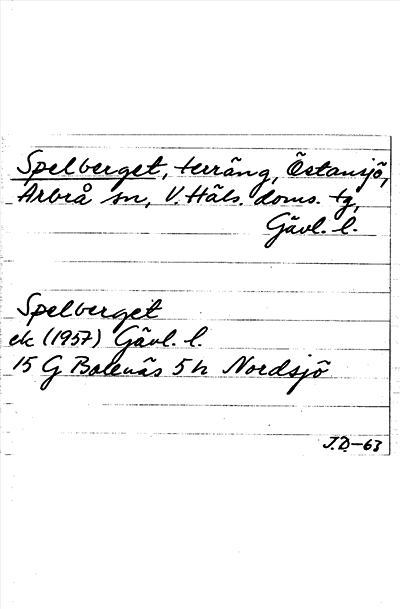 Spelberget, terräng, Östansjö,
Arbrå sn, V. Häls. doms. tg,
Gävl. l.
Spelberget
ek (1957) Gävl. l.
15 G Bolenäs 5 h Nordsjö
J.D.-63